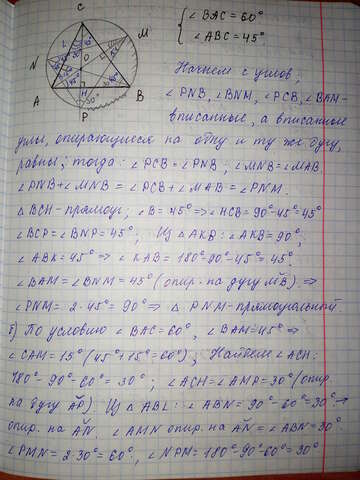 C
M
L
N
O
K
A
H
B
P
50°
{ ∠BAC = 60°
∠ABC = 45°
Начнем с углов;
∠PNB, ∠BNM, ∠PCB, ∠BAM-
вписанные, а вписанные
углы, опирающиеся на одну и ту же дугу,
равны; тогда: ∠PCB = ∠PNB; ∠MNB = ∠MAB
∠PNB + ∠MNB = ∠PCB + ∠MAB = ∠PNM.
△BCH - прямоуг; ∠B = 45° => ∠HCB = 90° - 45° = 45°
∠BCP = ∠BNP = 45°; Из △AKB: ∠AKB = 90°;
∠ABK = 45° => ∠KAB = 180° - 90° - 45° = 45°
∠BAM = ∠BNM = 45° (опир. на дугу MB) =>
∠PNM = 2·45° = 90° => △PNM - прямоугольный
б) По условию ∠BAC = 60°, ∠BAM = 45° =>
∠CAM = 15° (45° + 15° = 60°); Найдем ∠ACH:
180° - 90° - 60° = 30°; ∠ACH = ∠AMP = 30° (опир.
на дугу AP) Из △ABL: ∠ABN = 90° - 60° = 30° =>
опир. на AN. ∠AMN опир. на AN = ∠ABN = 30°
∠PMN = 2·30° = 60°, ∠NPM = 180° - 90° - 60° = 30°